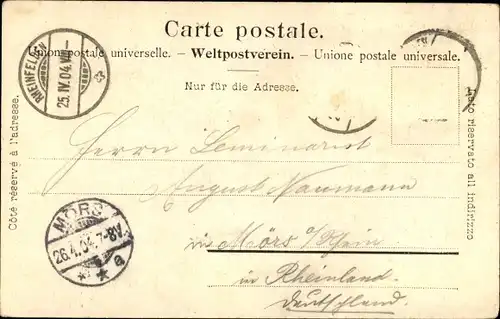 Carte postale.
Union postale universelle. – Weltpostverein. – Unione postale universale.
Nur für die Adresse.
Côté réservé à l'adresse.
Lato riservato all indirizzo
RHEINFELDEN
25.IV.04.
Herrn Seminarist
August Naumann
in Mörs a/Rhein
in Rheinland.
Deutschland.
MÖRS
26.4.04.7-8V.
* * a